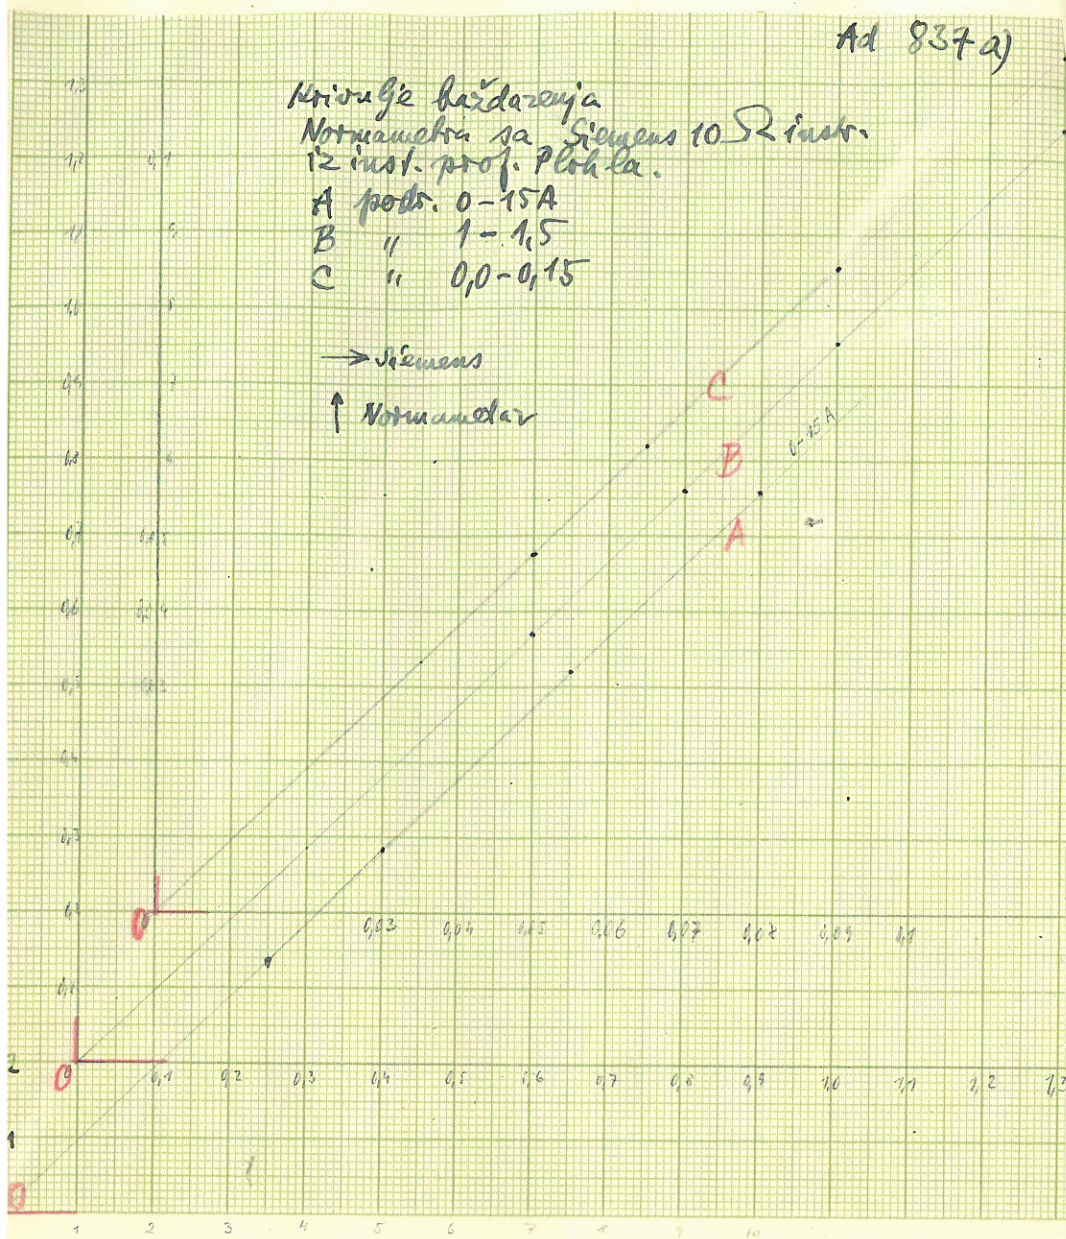 Ad 837 a)
Krivulje baždarenja
Normametra sa Siemens 10 Ω instr.
iz inst. prof. Plohla.
A podr. 0-15A
B " 1-1,5
C " 0,0-0,15
→ Siemens
↑ Normametar
1,3
1,2 0,1
1,1 9
1,0 8
0,9 7
C
0-15 A
0,8 6
B
0,7
A
0,6
0,5
0,4
0,3
0
0,03 0,04 0,05 0,06 0,07 0,08 0,09 0,1
0,1
2
0
0,1 0,2 0,3 0,4 0,5 0,6 0,7 0,8 0,9 1,0 1,1 1,2 1,3
1
0
1 2 3 4 5 6 7 8 9 10